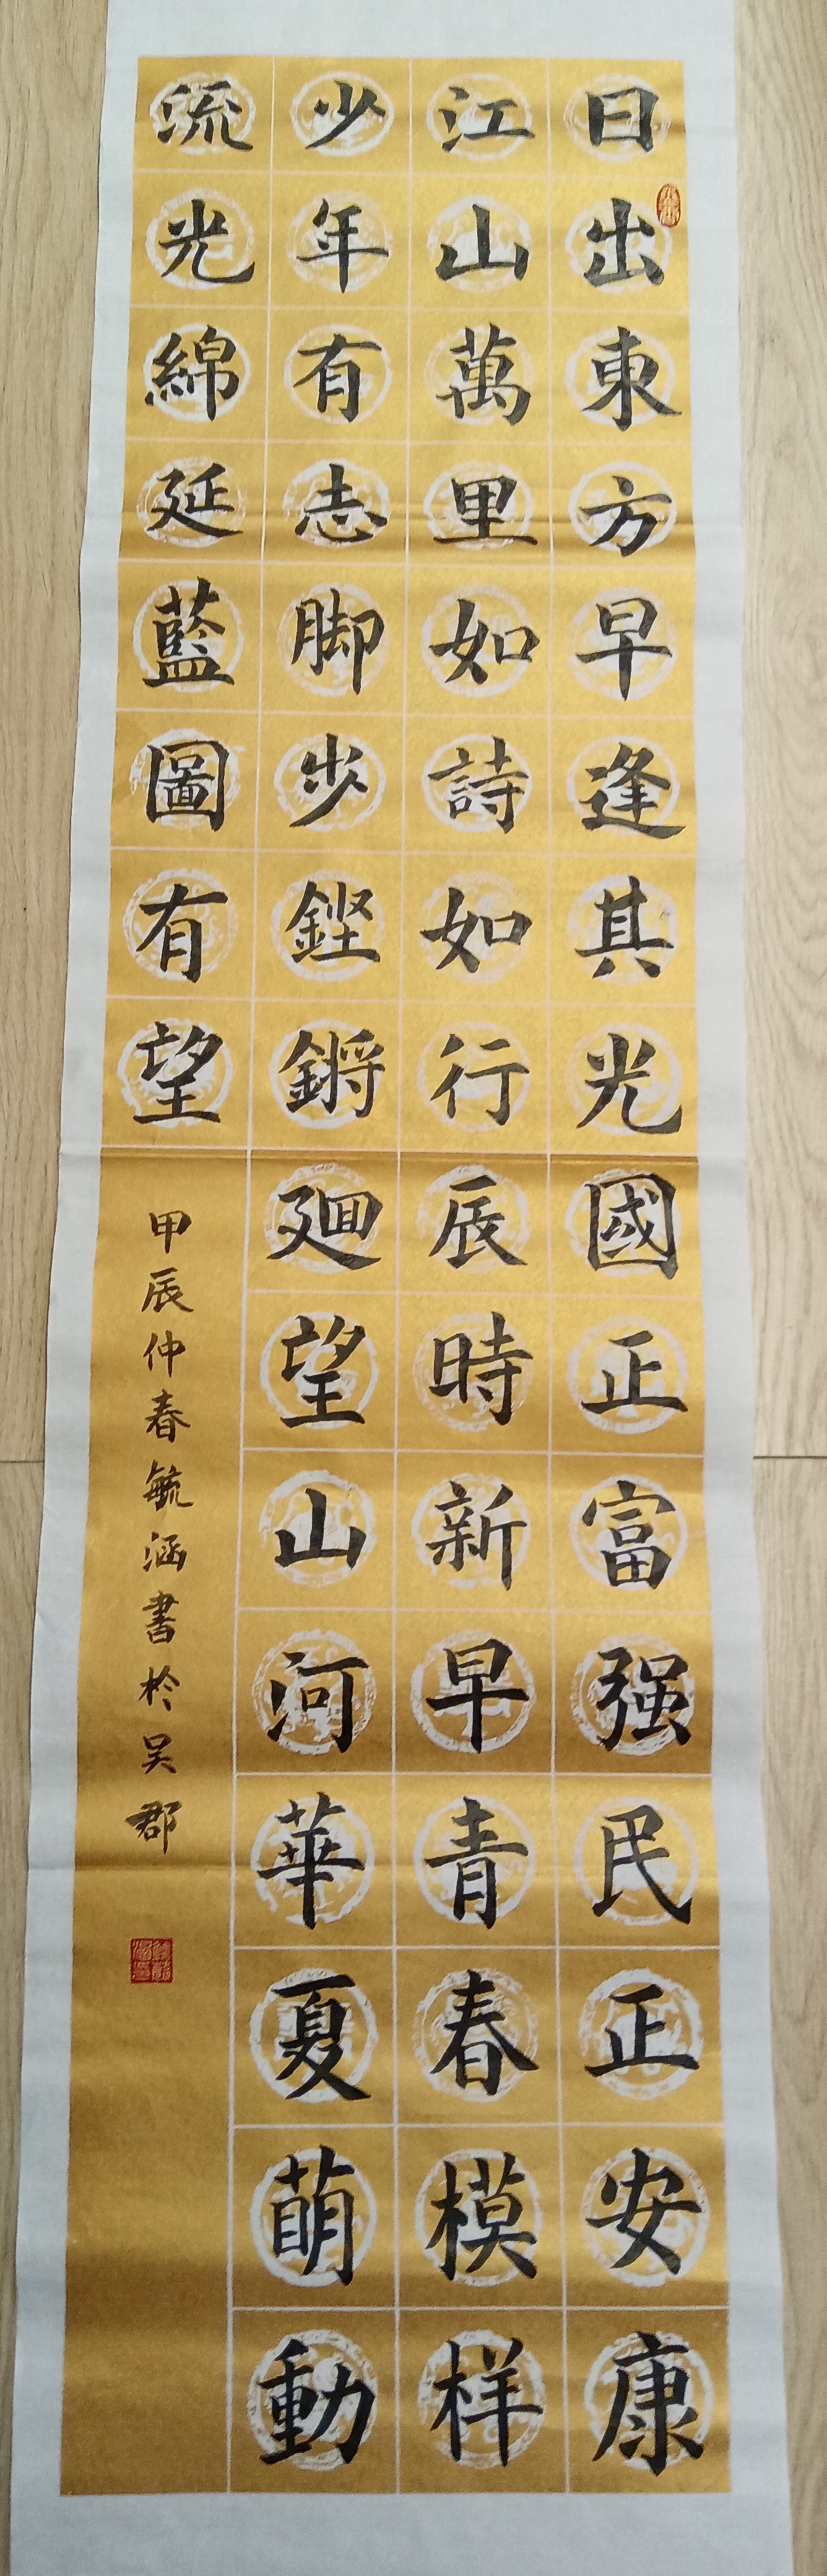 日出東方早逢其光國正富强民正安康
江山萬里如詩如行辰時新早青春模样
少年有志脚步鏗鏘廻望山河華夏萌動
流光綿延藍圖有望
甲辰仲春毓涵書於吴郡